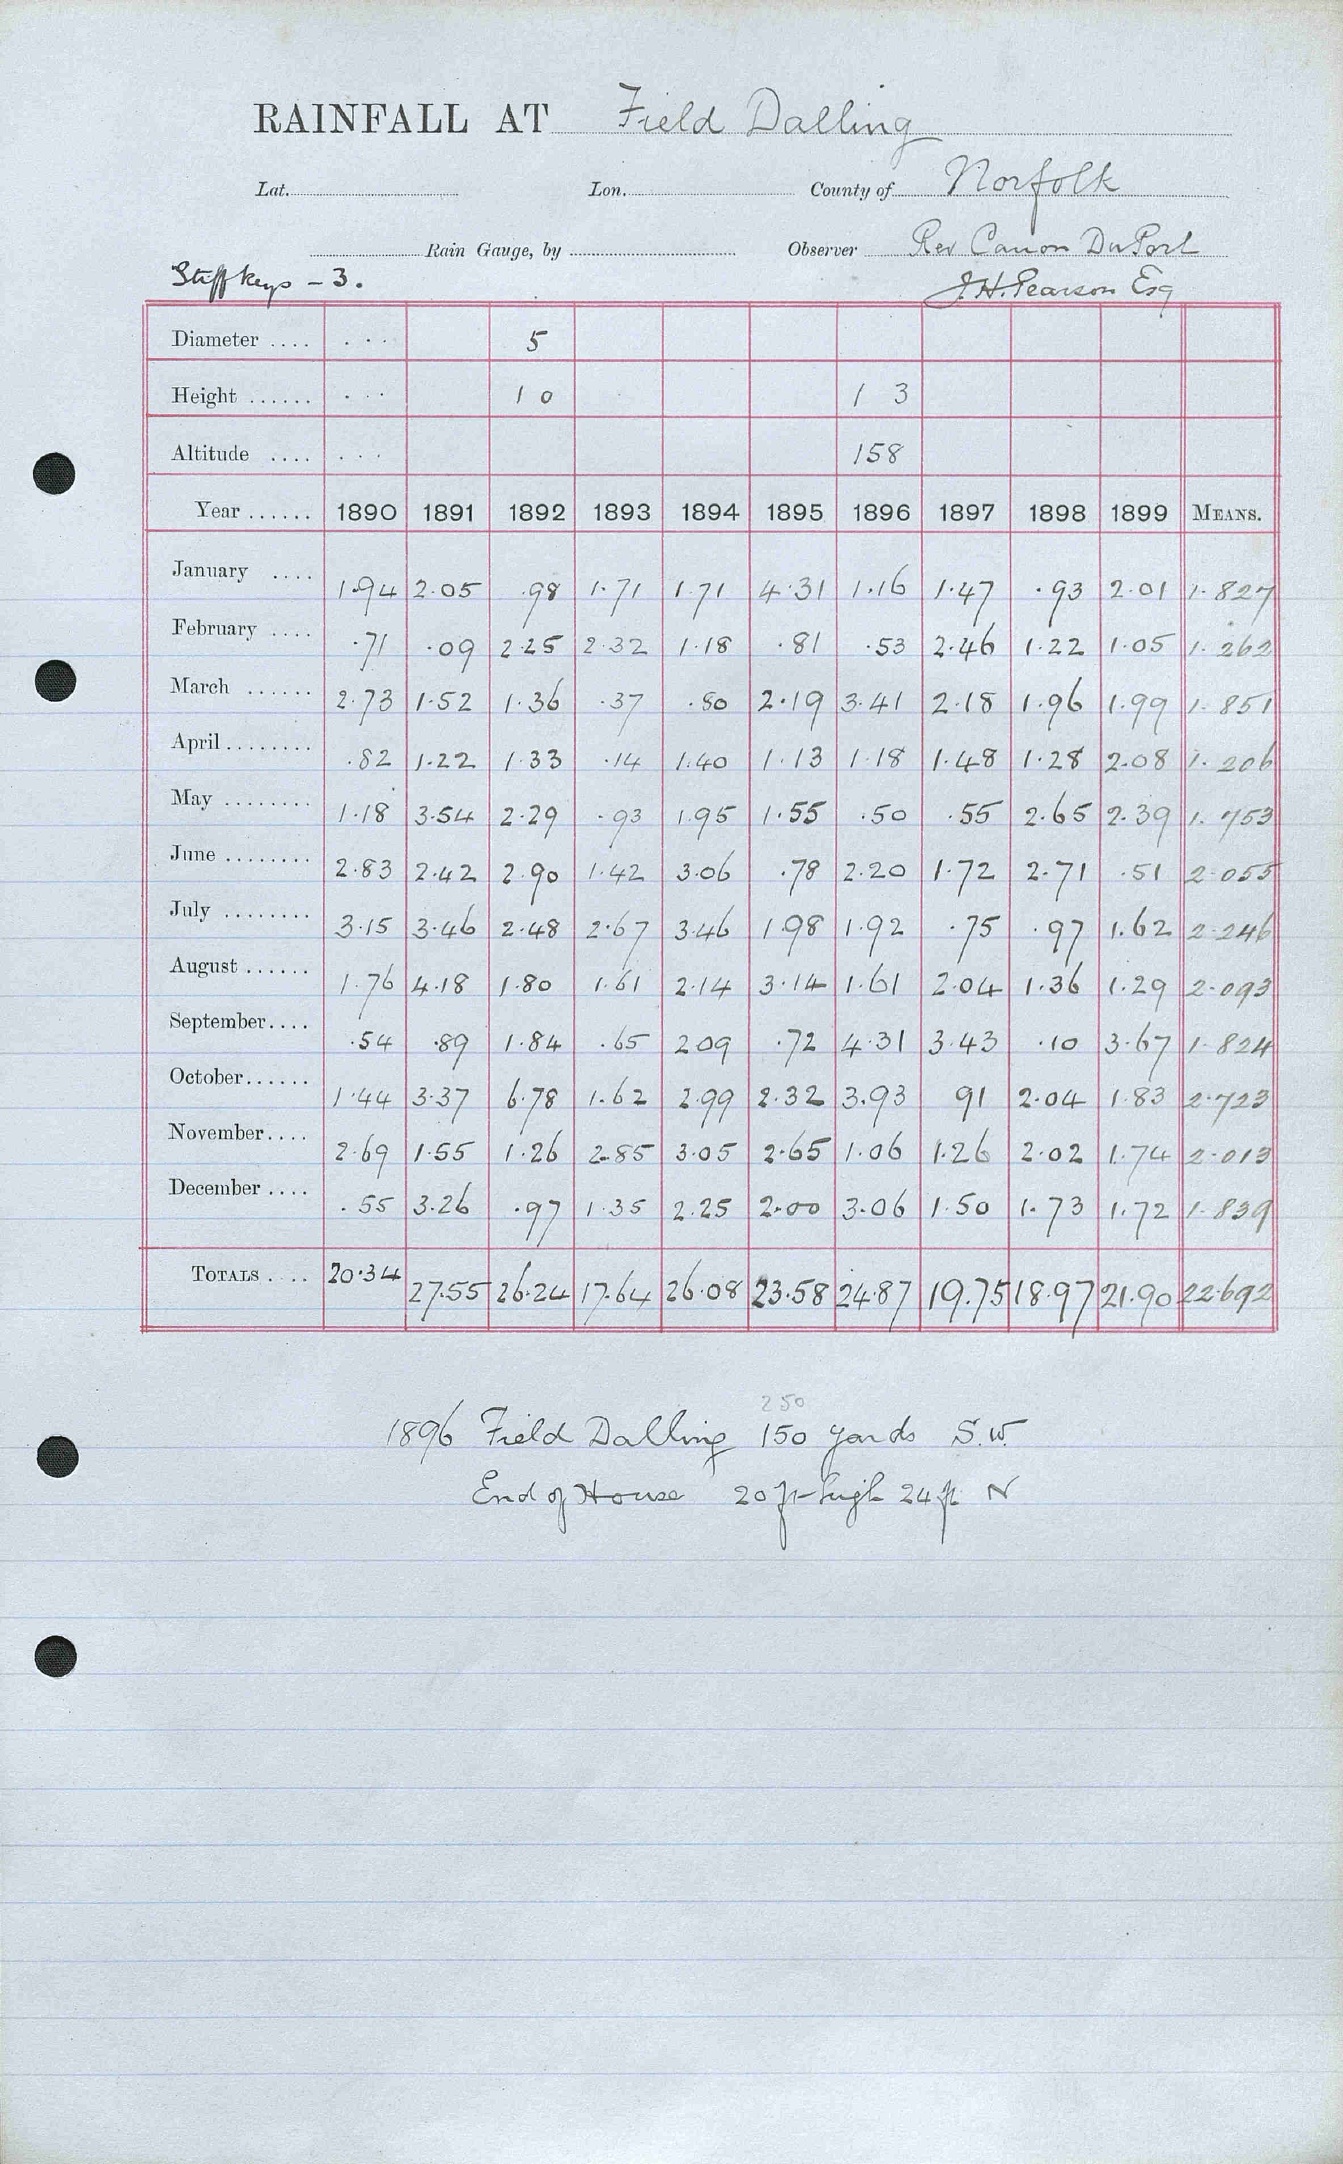 RAINFALL AT Field Dalling
Lat. Lon. County of Norfolk
Rain Gauge, by Observer Rev Canon Du Port
Stiffkeys - 3. J. H. Pearson Esq
Diameter .... ... 5
Height ...... ... 1 0 1 3
Altitude .... ... 158
Year ...... 1890 1891 1892 1893 1894 1895 1896 1897 1898 1899 MEANS.
January .... 1.94 2.05 .98 1.71 1.71 4.31 1.16 1.47 .93 2.01 1.827
February .... .71 .09 2.25 2.32 1.18 .81 .53 2.46 1.22 1.05 1.262
March ...... 2.73 1.52 1.36 .37 .80 2.19 3.41 2.18 1.96 1.99 1.851
April ........ .82 1.22 1.33 .14 1.40 1.13 1.18 1.48 1.28 2.08 1.206
May ........ 1.18 3.54 2.29 .93 1.95 1.55 .50 .55 2.65 2.39 1.753
June ........ 2.83 2.42 2.90 1.42 3.06 .78 2.20 1.72 2.71 .51 2.055
July ........ 3.15 3.46 2.48 2.67 3.46 1.98 1.92 .75 .97 1.62 2.246
August ...... 1.76 4.18 1.80 1.61 2.14 3.14 1.61 2.04 1.36 1.29 2.093
September.... .54 .89 1.84 .65 2 09 .72 4.31 3.43 .10 3.67 1.824
October...... 1.44 3.37 6.78 1.62 2.99 2.32 3.93 91 2.04 1.83 2.723
November.... 2.69 1.55 1.26 2.85 3.05 2.65 1.06 1.26 2.02 1.74 2.013
December .... .55 3.26 .97 1.35 2.25 2.00 3.06 1.50 1.73 1.72 1.839
TOTALS .... 20.34 27.55 26.24 17.64 26.08 23.58 24.87 19.75 18.97 21.90 22.692
250
1896 Field Dalling 150 yards S.W.
End of House 20 ft high 24 ft N